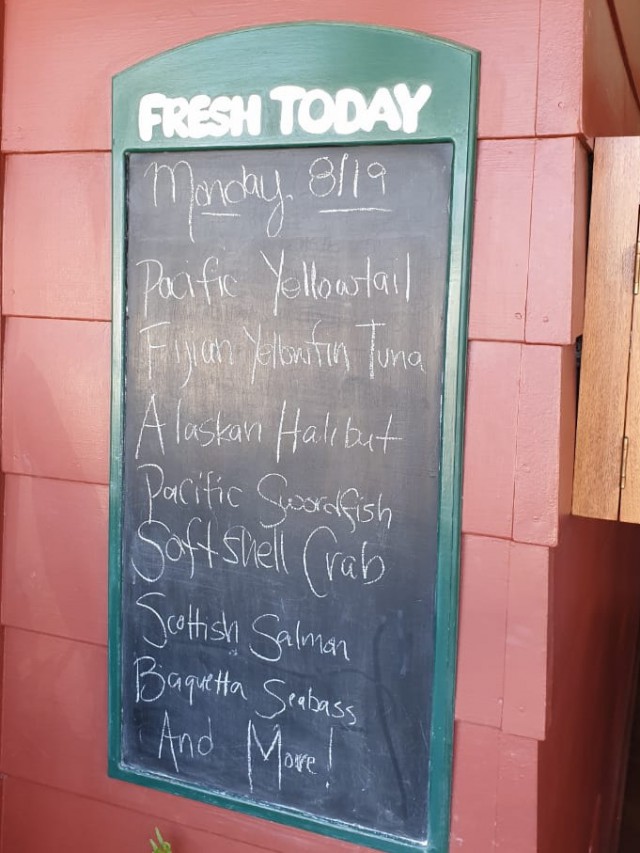 FRESH TODAY
Monday, 8/19
Pacific Yellowtail
Fijian Yellowfin Tuna
Alaskan Halibut
Pacific Swordfish
Softshell Crab
Scottish Salmon
Baquetta Seabass
And More!